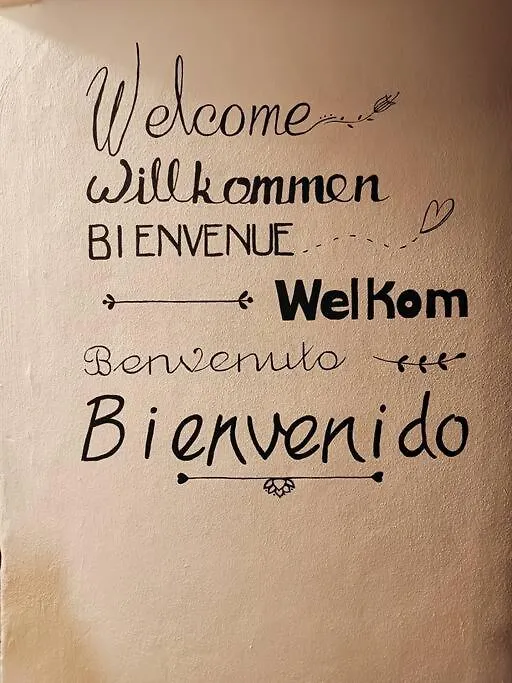 Welcome
Willkommen
BIENVENUE
Welkom
Benvenuto
Bienvenido